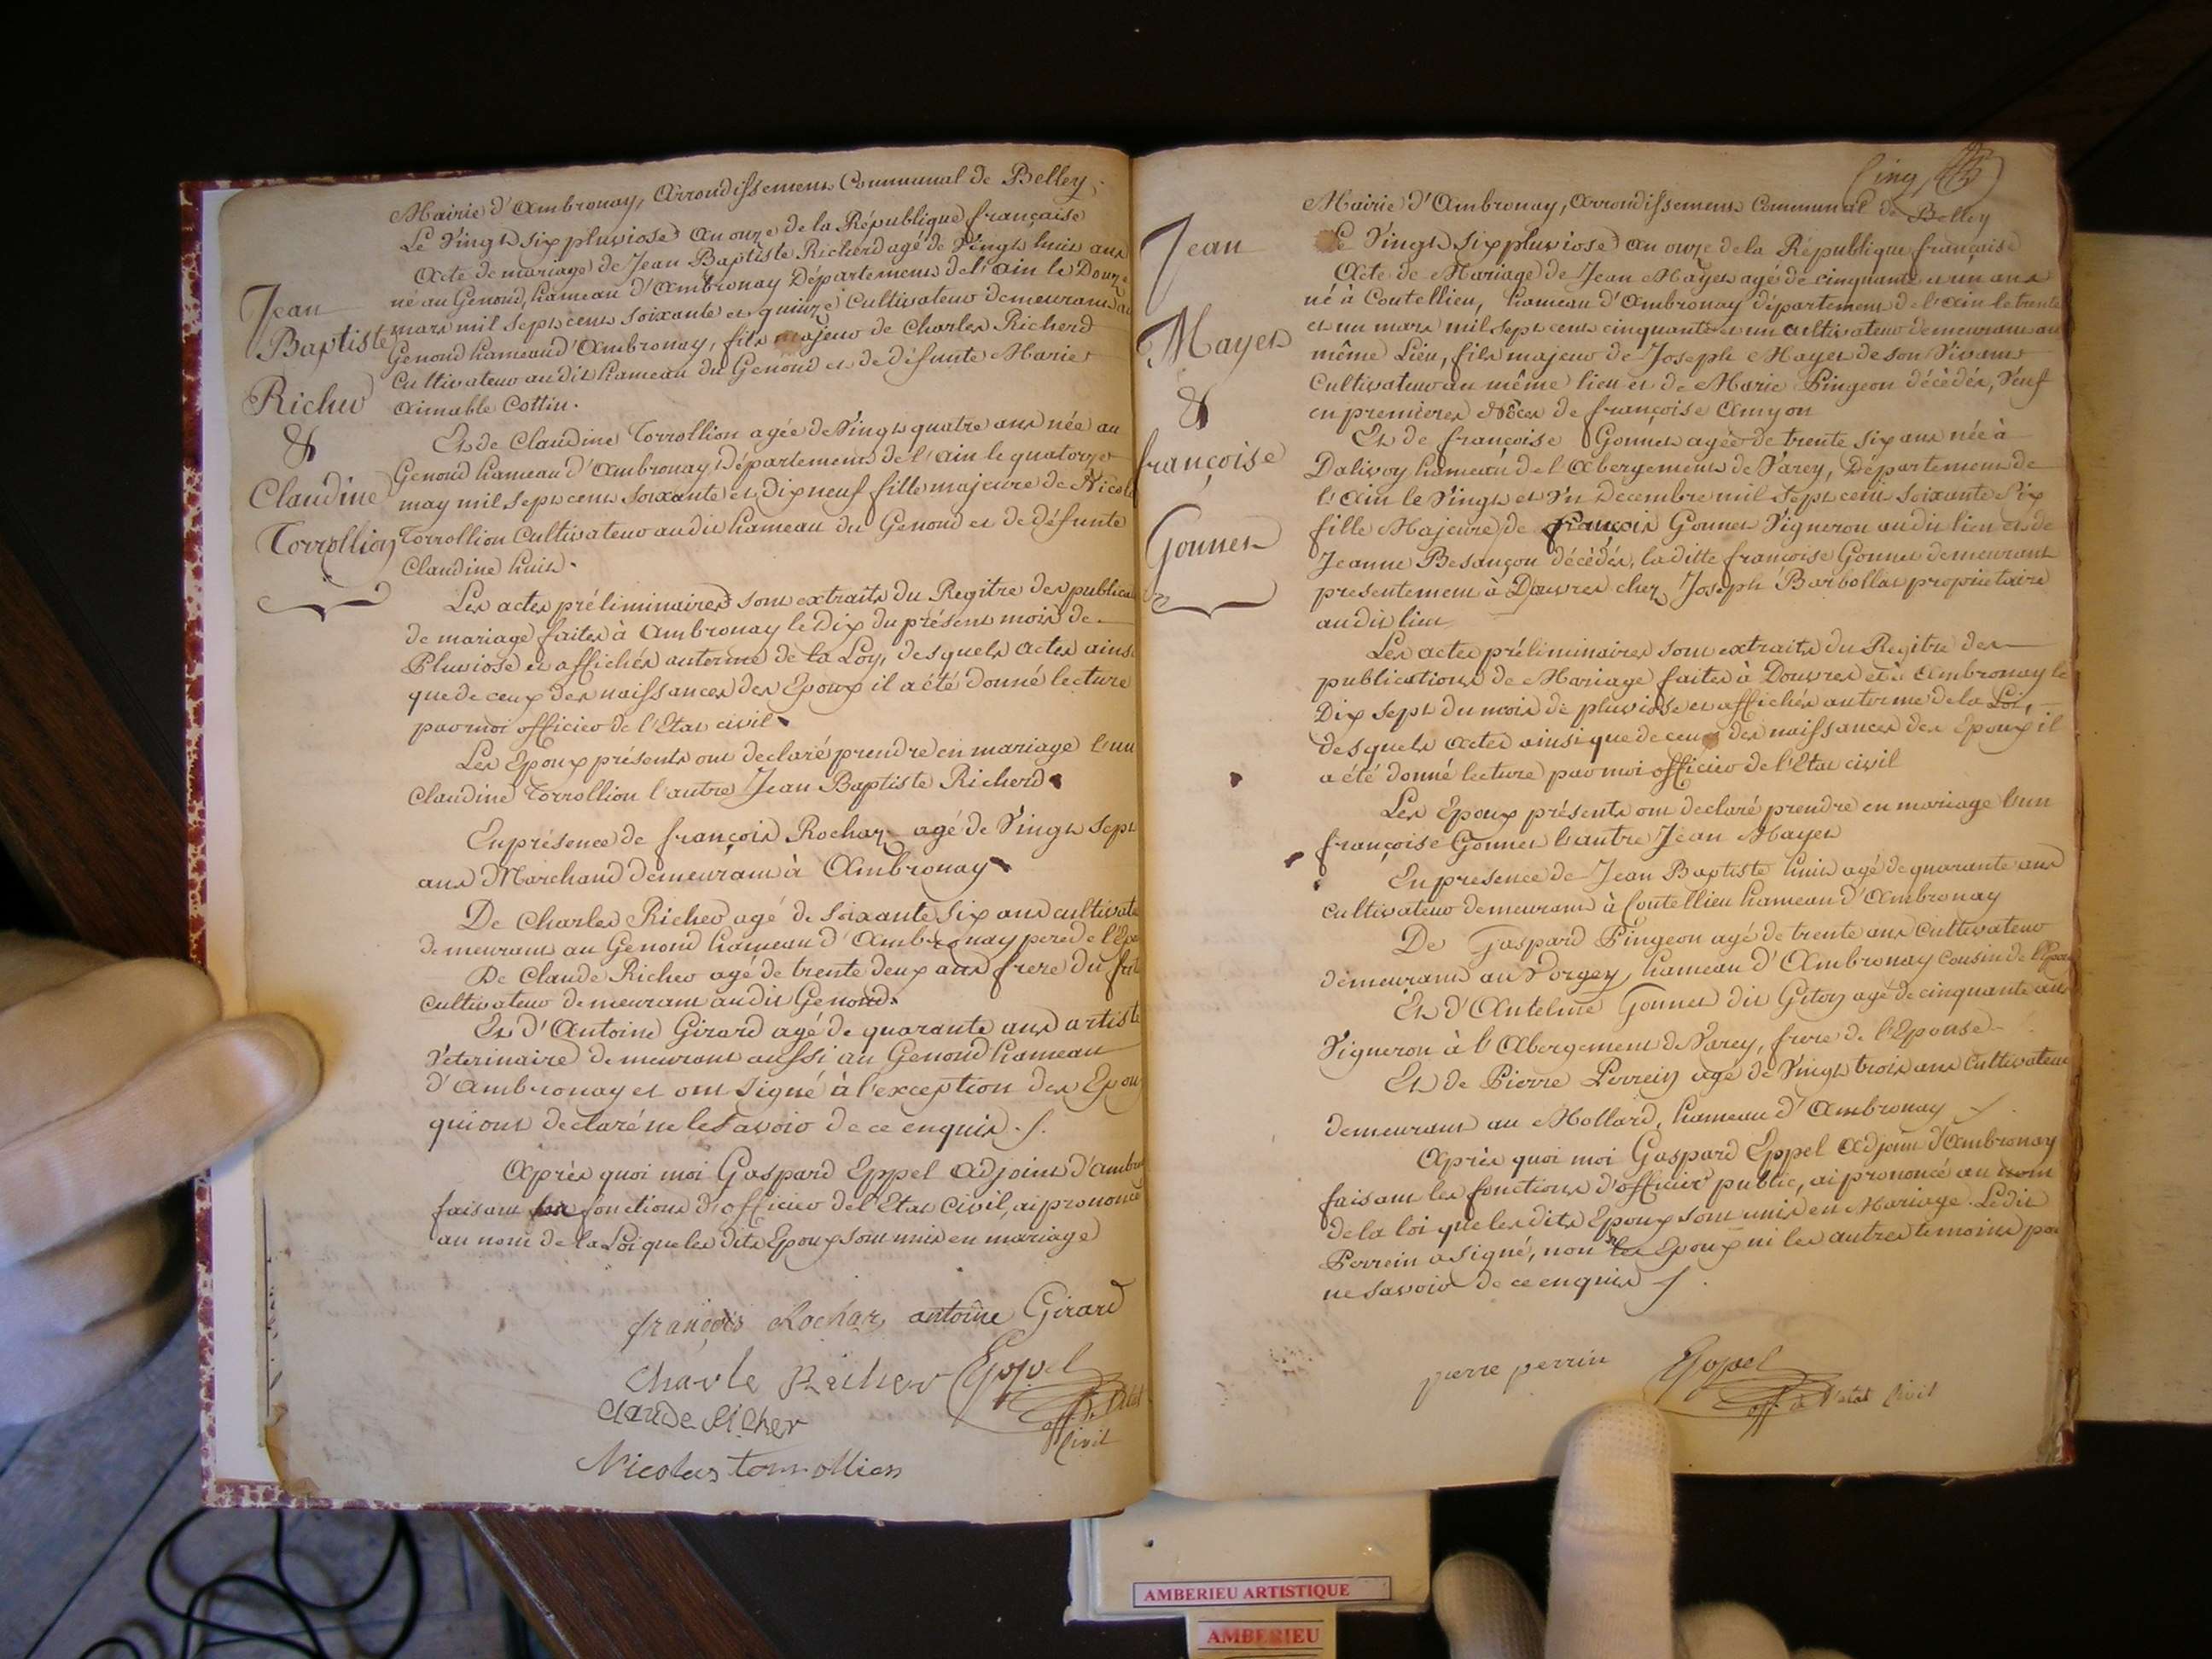 Mairie d'Ambronay, Arrondissement Communal de Belley.
Le Vingt six pluviose an onze de la République française
Acte de mariage de Jean Baptiste Richerd agé de Vingt huit ans
né au Genoud, hameau d'Ambronay Département de l'ain le Douze
mars mil sept cent soixante et quinze Cultivateur demeurant au
Genoud hameau d'Ambronay, fils majeur de Charles Richerd
Cultivateur au dit hameau du Genoud et de défunte Marie
Aimable Cottin.
Jean
Baptiste
Richer
&
Claudine
Torrollion
Et de Claudine Torrollion agée de Vingt quatre ans née au
Genoud hameau d'Ambronay, Département de l'ain le quatorze
may mil sept cent soixante et dix neuf fille majeure de Nicola
Torrollion Cultivateur au dit hameau du Genoud et de défunte
Claudine huit.
Les actes préliminaires sont extraits du Regitre des publica
de mariage faites à Ambronay le Dix du présent mois de
Pluviose et affichés au terme de la Loy, desquels actes ainsi
que de ceux des naissances des Epoux il a été donné lecture
par moi officier de l'Etat civil
Les Epoux présents ont declaré prendre en mariage l'un
Claudine Torrollion l'autre Jean Baptiste Richerd
En présence de françois Rochaz agé de Vingt sept
ans Marchand demeurant à Ambronay
De Charles Richer agé de soixante six ans cultivate
demeurant au Genoud hameau d'Ambronay pere de l'Epo
De Claude Richer agé de trente deux ans frere du fut
Cultivateur demeurant au dit Genoud.
Et d'Antoine Girard agé de quarante ans artiste
Veterinaire demeurant aussi au Genoud hameau
d'Ambronay et ont signé à l'exception des Epou
qui ont declaré ne le savoir de ce enquis ./.
Après quoi moi Gaspard Eppel Adjoint d'ambro
faisant les fonctions d'officier de l'Etat Civil, ai prononcé
au nom de la Loi que les dits Epoux sont unis en mariage
françois Rochaz antoine Girard
Charle Richer Eppel
off. de l'Etat
Claude Richer
Civil
Nicolas torrollion
Cinq
Mairie d'Ambronay, Arrondissement Communal de Belley
Le Vingt six pluviose an onze de la République française
Acte de Mariage de Jean Mayet agé de cinquante et un ans
né à Coutellieu, hameau d'Ambronay département de l'Ain le trente
et un mars mil sept cent cinquante et un cultivateur demeurant au
même Lieu, fils majeur de Joseph Mayet de son Vivant
Cultivateur au même lieu et de Marie Pingeon décédés, Veuf
en premieres Nôces de françoise Amyon
Jean
Mayet
&
françoise
Gonnet
Et de françoise Gonnet agée de trente six ans née à
Dalivoy hameau de l'Abergement de Varey, Département de
l'Ain le Vingt et Vn Decembre mil sept cent soixante Six
fille Majeure de françois Gonnet Vigneron au dit lieu et de
Jeanne Besançon décédés, laditte françoise Gonnet demeurant
presentement à Douvres chez Joseph Barbollat propriétaire
au dit lieu
Les actes préliminaires sont extraits du Regitre des
publications de Mariage faites à Douvres et à Ambronay le
Dix sept du mois de pluviose et affichés au terme de la Loi,
desquels actes ainsi que de ceux des naissances des Epoux il
a été donné lecture par moi officier de l'Etat civil
Les Epoux présents ont declaré prendre en mariage l'un
françoise Gonnet l'autre Jean Mayet
En presence de Jean Baptiste huit agé de quarante ans
Cultivateur demeurant à Coutellieu hameau d'Ambronay
De Gaspard Pingeon agé de trente ans Cultivateur
demeurant au Vorgey, hameau d'Ambronay Cousin de l'Epou
Et d'Antelme Gonnet dit Gitoy agé de cinquante ans
Vigneron à l'Abergement de Varey, frere de l'Epouse
Et de Pierre Perrein age de Vingt trois ans Cultivateur
demeurant au Mollard, hameau d'Ambronay
Après quoi moi Gaspard Eppel Adjoint d'Ambronay
faisant les fonctions d'officier public, ai prononcé au nom
de la loi que les dits Epoux sont unis en Mariage. Le dit
Perrein a signé, non les Epoux ni les autres temoins pou
ne savoir de ce enquis ./.
pierre perrin Eppel
off. de l'etat Civil
AMBERIEU ARTISTIQUE
AMBERIEU